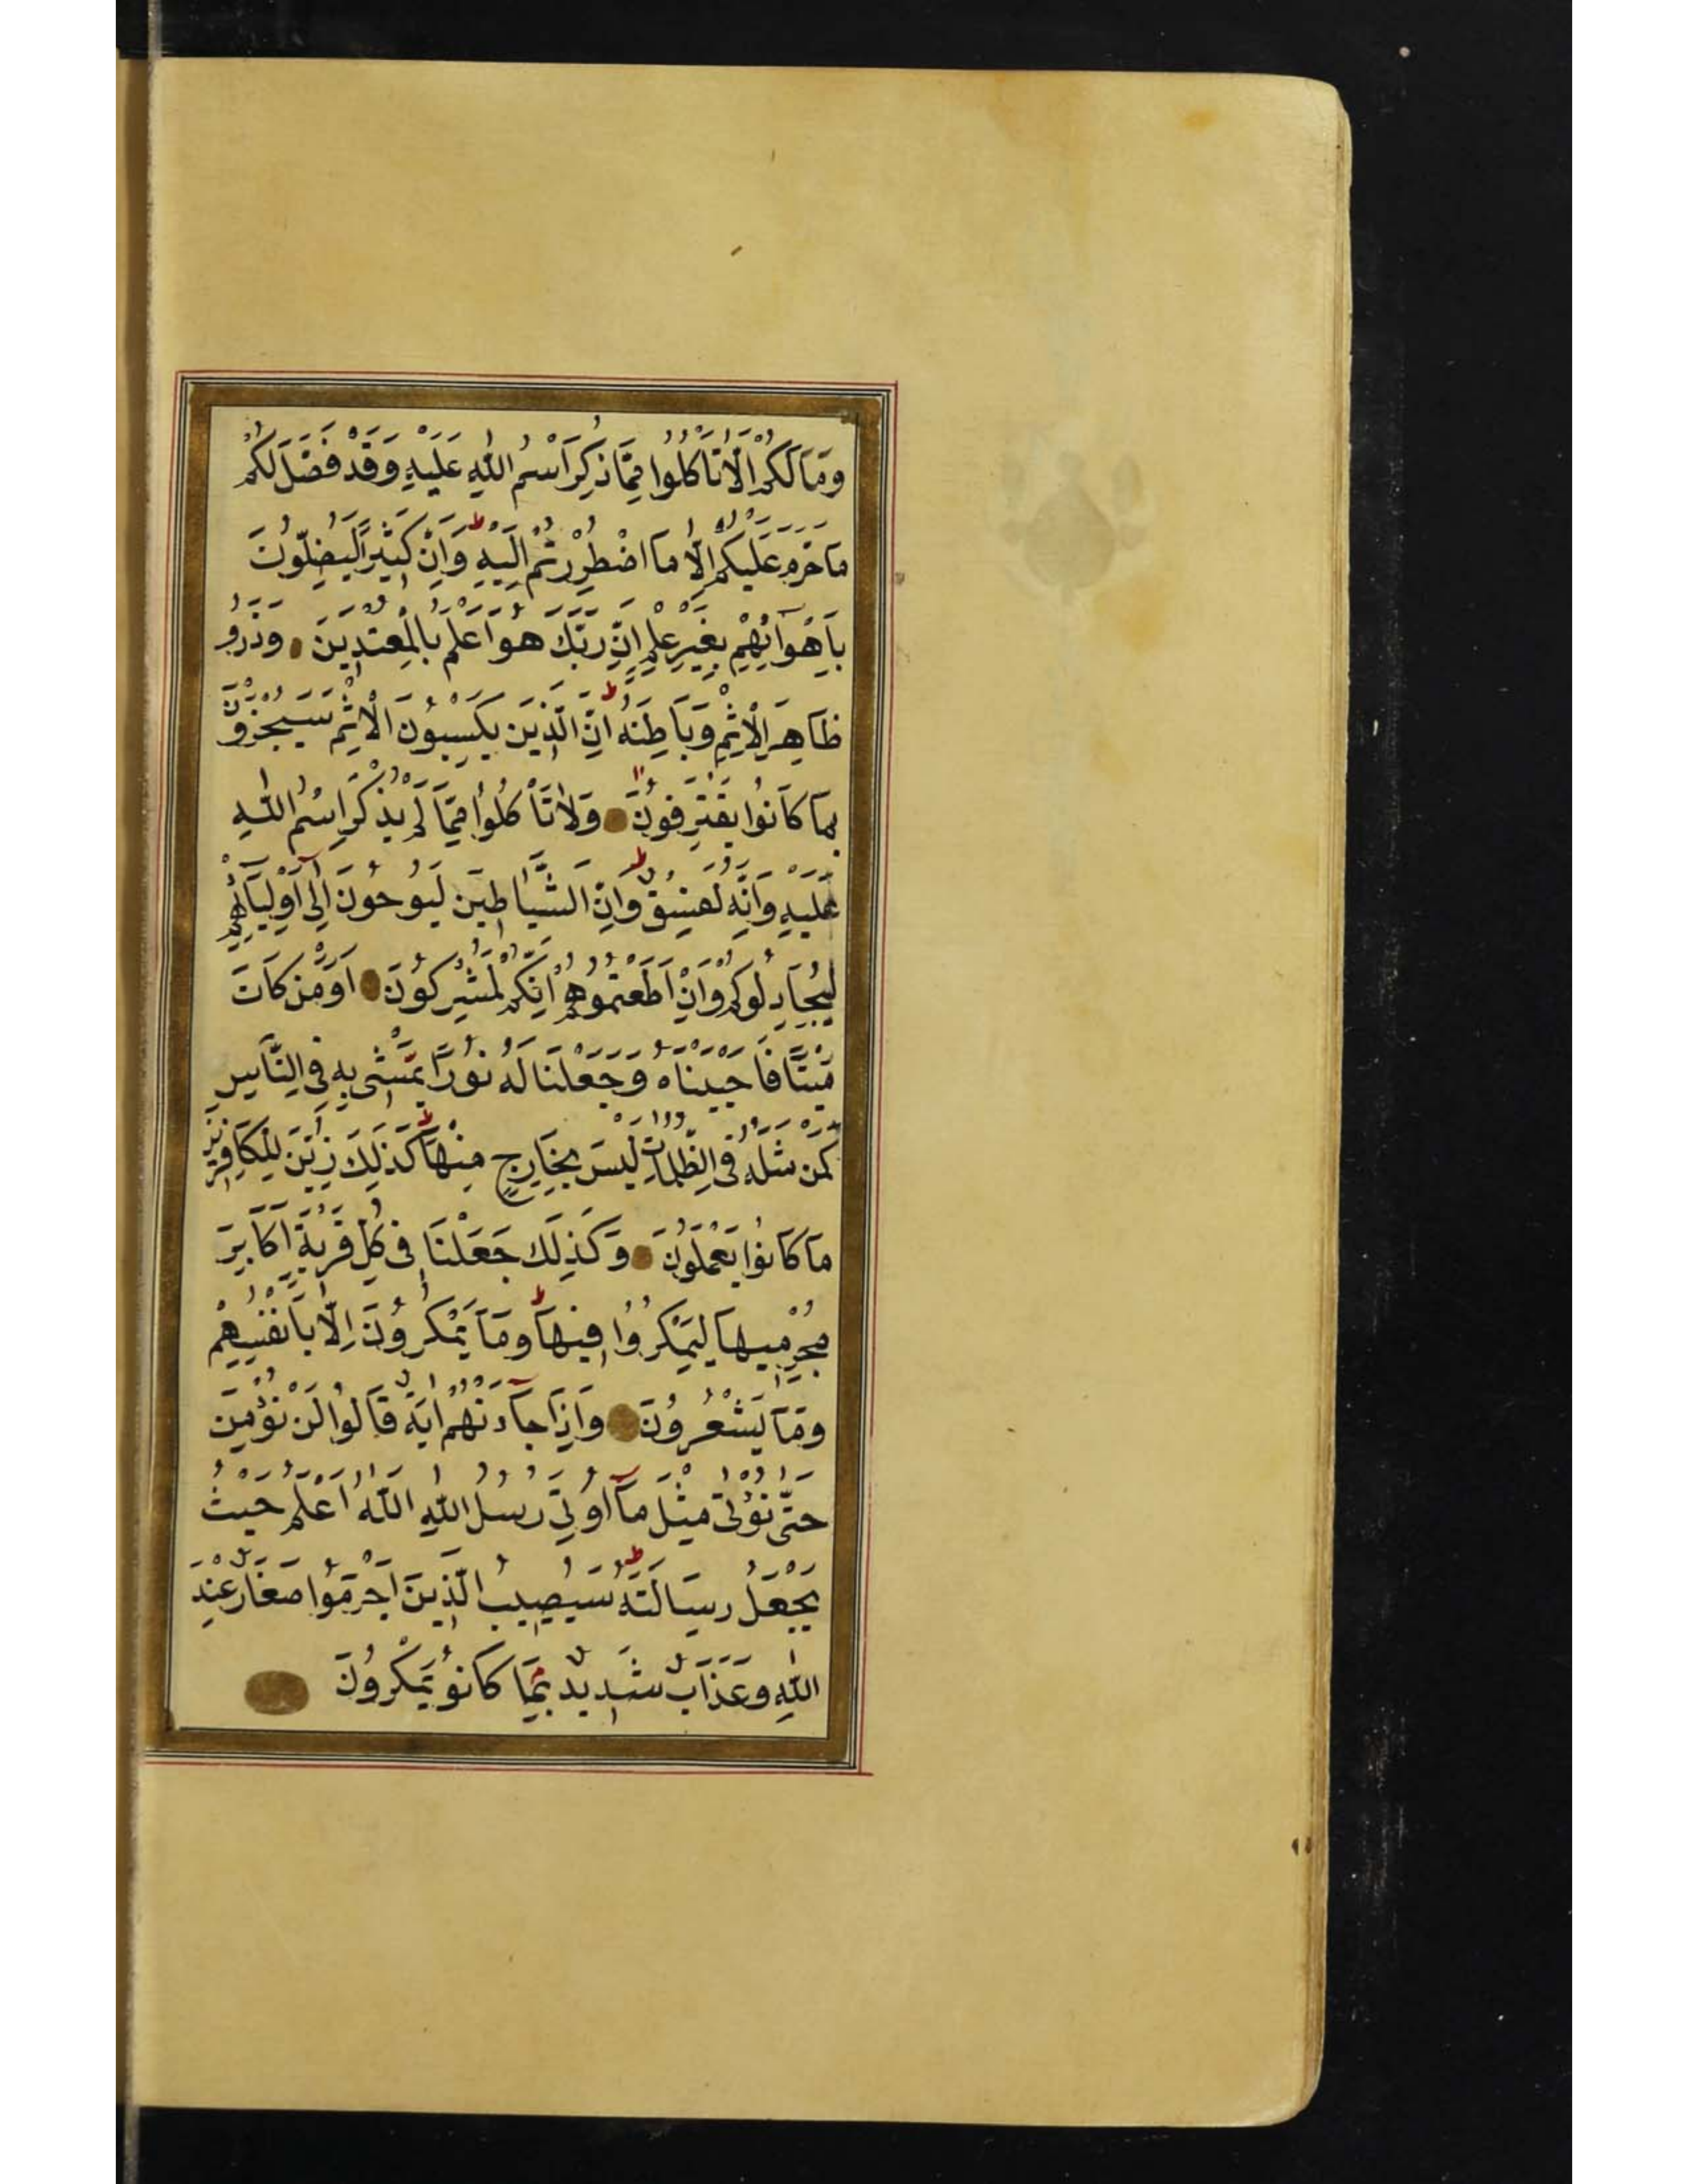 وَمَا لَكُمْ اَلَّا تَاْكُلُوا مِمَّا ذُكِرَ اسْمُ اللّٰهِ عَلَيْهِ وَقَدْ فَصَّلَ لَكُمْ
مَا حَرَّمَ عَلَيْكُمْ اِلَّا مَا اضْطُرِرْتُمْ اِلَيْهِ ط وَاِنَّ كَثِيرًا لَيُضِلُّونَ
بِاَهْوَآئِهِمْ بِغَيْرِ عِلْمٍ اِنَّ رَبَّكَ هُوَ اَعْلَمُ بِالْمُعْتَدِينَ وَذَرُو
ظَاهِرَ الْاِثْمِ وَبَاطِنَهُ ط اِنَّ الَّذِينَ يَكْسِبُونَ الْاِثْمَ سَيُجْزَوْنَ
بِمَا كَانُوا يَقْتَرِفُونَ وَلَا تَاْكُلُوا مِمَّا لَمْ يُذْكَرِ اسْمُ اللّٰهِ
عَلَيْهِ وَاِنَّهُ لَفِسْقٌ ط وَاِنَّ الشَّيَاطِينَ لَيُوحُونَ اِلٰٓى اَوْلِيَآئِهِمْ
لِيُجَادِلُوكُمْ وَاِنْ اَطَعْتُمُوهُمْ اِنَّكُمْ لَمُشْرِكُونَ اَوَمَنْ كَانَ
مَيْتًا فَاَحْيَيْنَاهُ وَجَعَلْنَا لَهُ نُورًا يَمْشِى بِهِ فِى النَّاسِ
كَمَنْ مَثَلُهُ فِى الظُّلُمَاتِ لَيْسَ بِخَارِجٍ مِنْهَا ط كَذٰلِكَ زُيِّنَ لِلْكَافِرِينَ
مَا كَانُوا يَعْمَلُونَ وَكَذٰلِكَ جَعَلْنَا فِى كُلِّ قَرْيَةٍ اَكَابِرَ
مُجْرِمِيهَا لِيَمْكُرُوا فِيهَا ط وَمَا يَمْكُرُونَ اِلَّا بِاَنْفُسِهِمْ
وَمَا يَشْعُرُونَ وَاِذَا جَآءَتْهُمْ اٰيَةٌ قَالُوا لَنْ نُؤْمِنَ
حَتّٰى نُؤْتٰى مِثْلَ مَآ اُوتِىَ رُسُلُ اللّٰهِ اَللّٰهُ اَعْلَمُ حَيْثُ
يَجْعَلُ رِسَالَتَهُ ط سَيُصِيبُ الَّذِينَ اَجْرَمُوا صَغَارٌ عِنْدَ
اللّٰهِ وَعَذَابٌ شَدِيدٌ بِمَا كَانُو يَمْكُرُونَ